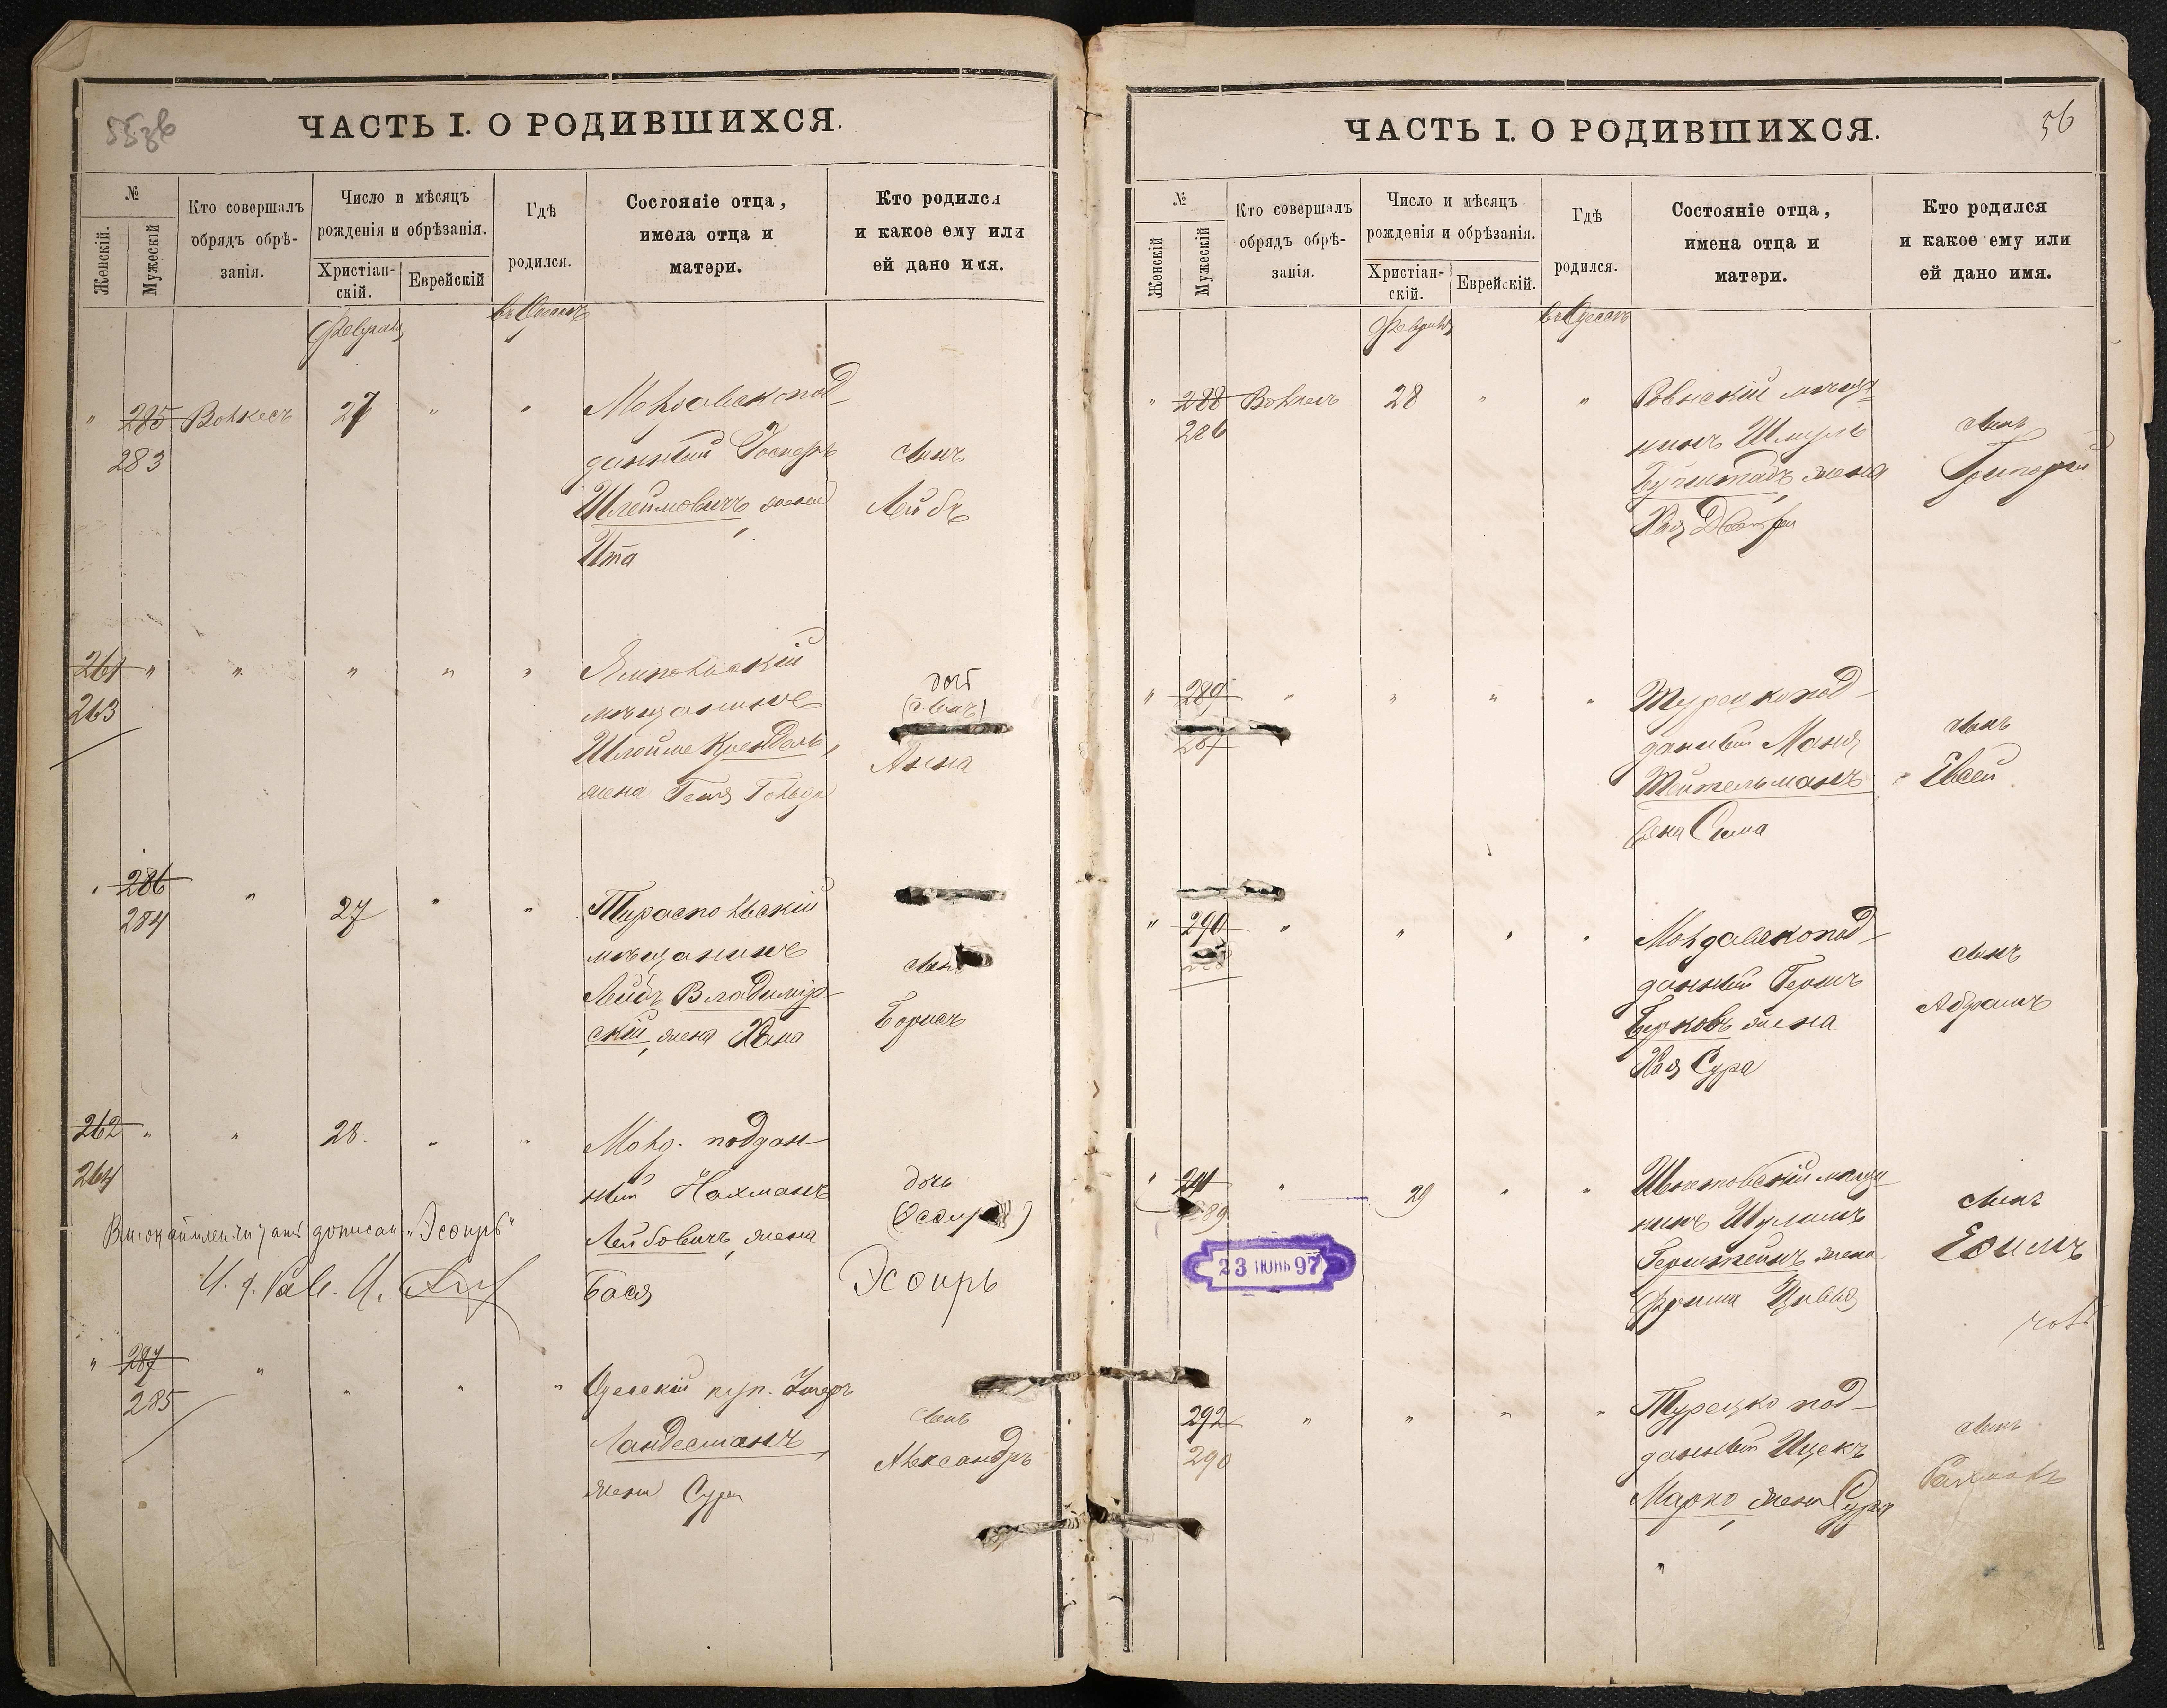 55об
ЧАСТЬ I. О РОДИВШИХСЯ.
№
Женскій.
Мужескій
Кто совершалъ
обрядъ обрѣ-
занія.
Число и мѣсяцъ
рожденія и обрѣзанія.
Христіан-
скій.
Еврейскій
Гдѣ
родился.
Состояніе отца,
имена отца и
матери.
Кто родился
и какое ему или
ей дано имя.
Февраля
въ Одессѣ
" 285 Волкесъ 27 " "
283
Молдавскопод-
данный
Шлеймовичъ жена
Ита
сынъ
Лейбъ
261 " " " " "
263
Ямпольскій
мѣщанинъ
Шлойме Крендель,
жена Геня Гольда
дочь
(сынъ)
Анна
" 286 " 27 " "
284
Тираспольскій
мѣщанинъ
Лейбъ Владимір-
скій, жена Хана
сынъ
Борисъ
262 " " 28. " "
264
Молд. поддан-
ный Нахманъ
Лейбовичъ, жена
Бася
дочь
Эсѳирь
дописан "Эсѳирь"
" 287 " " " "
285
Одесскій куп.
Ландесманъ,
жена Сура
сынъ
Александръ
56
ЧАСТЬ I. О РОДИВШИХСЯ.
№
Женскій
Мужескій
Кто совершалъ
обрядъ обрѣ-
занія.
Число и мѣсяцъ
рожденія и обрѣзанія.
Христіан-
скій.
Еврейскій.
Гдѣ
родился.
Состояніе отца,
имена отца и
матери.
Кто родился
и какое ему или
ей дано имя.
Февраля
въ Одессѣ
" 288 Волкесъ 28 " "
286
мѣща-
нинъ Шмуль
жена
Хая Двойра
сынъ
Григорій
" 289 " " " "
287
Турецкопод-
данный
Тейтельманъ
жена Сима
сынъ
Евсей
" 290 " " " "
Молдавскопод-
данный Гершъ
Берковъ жена
Хая Сура
сынъ
Абрамъ
" 291 " 29 " "
289
мѣща-
нинъ Шулимъ
Герштейнъ жена
Фрима Цивья
сынъ
Ефимъ
23 ІЮНЬ 97
292 " " " "
290
Турецко под-
данный Ицекъ
Марко, жена Сура
сынъ